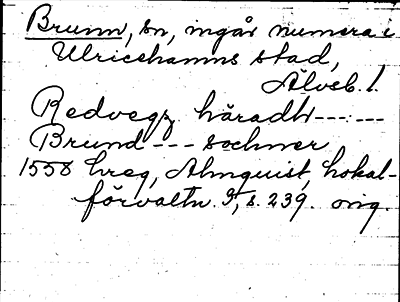 Brunn, sn, ingår numera i
Ulricehamns stad,
Älvsb. l.
Redvegz häradh --- ---
Brund --- sochner
1558 hreg, Almquist, Lokal-
förvaltn. I, s. 239. orig.